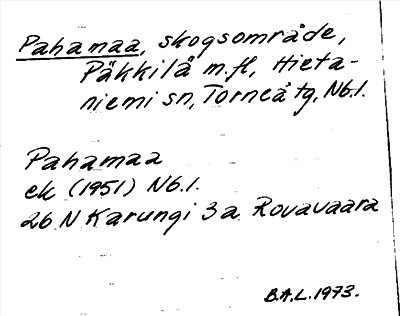 Pahamaa, skogsområde,
Päkkilä m.fl, Hieta-
niemi sn, Torneå tg, Nb.l.
Pahamaa
ek (1951) Nb.l.
26 N Karungi 3 a Rovavaara
B.A.L. 1973.